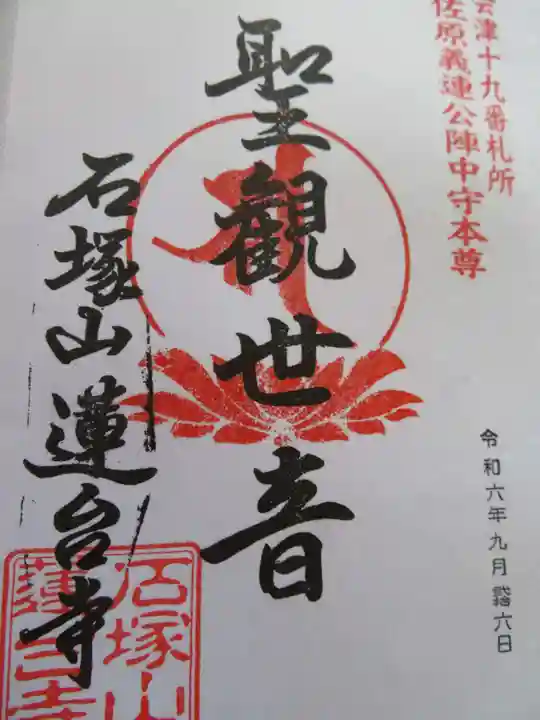 会津十九番札所
佐原義連公陣中守本尊
聖観世音
石塚山蓮台寺
令和六年九月 六日
石塚山
蓮台寺